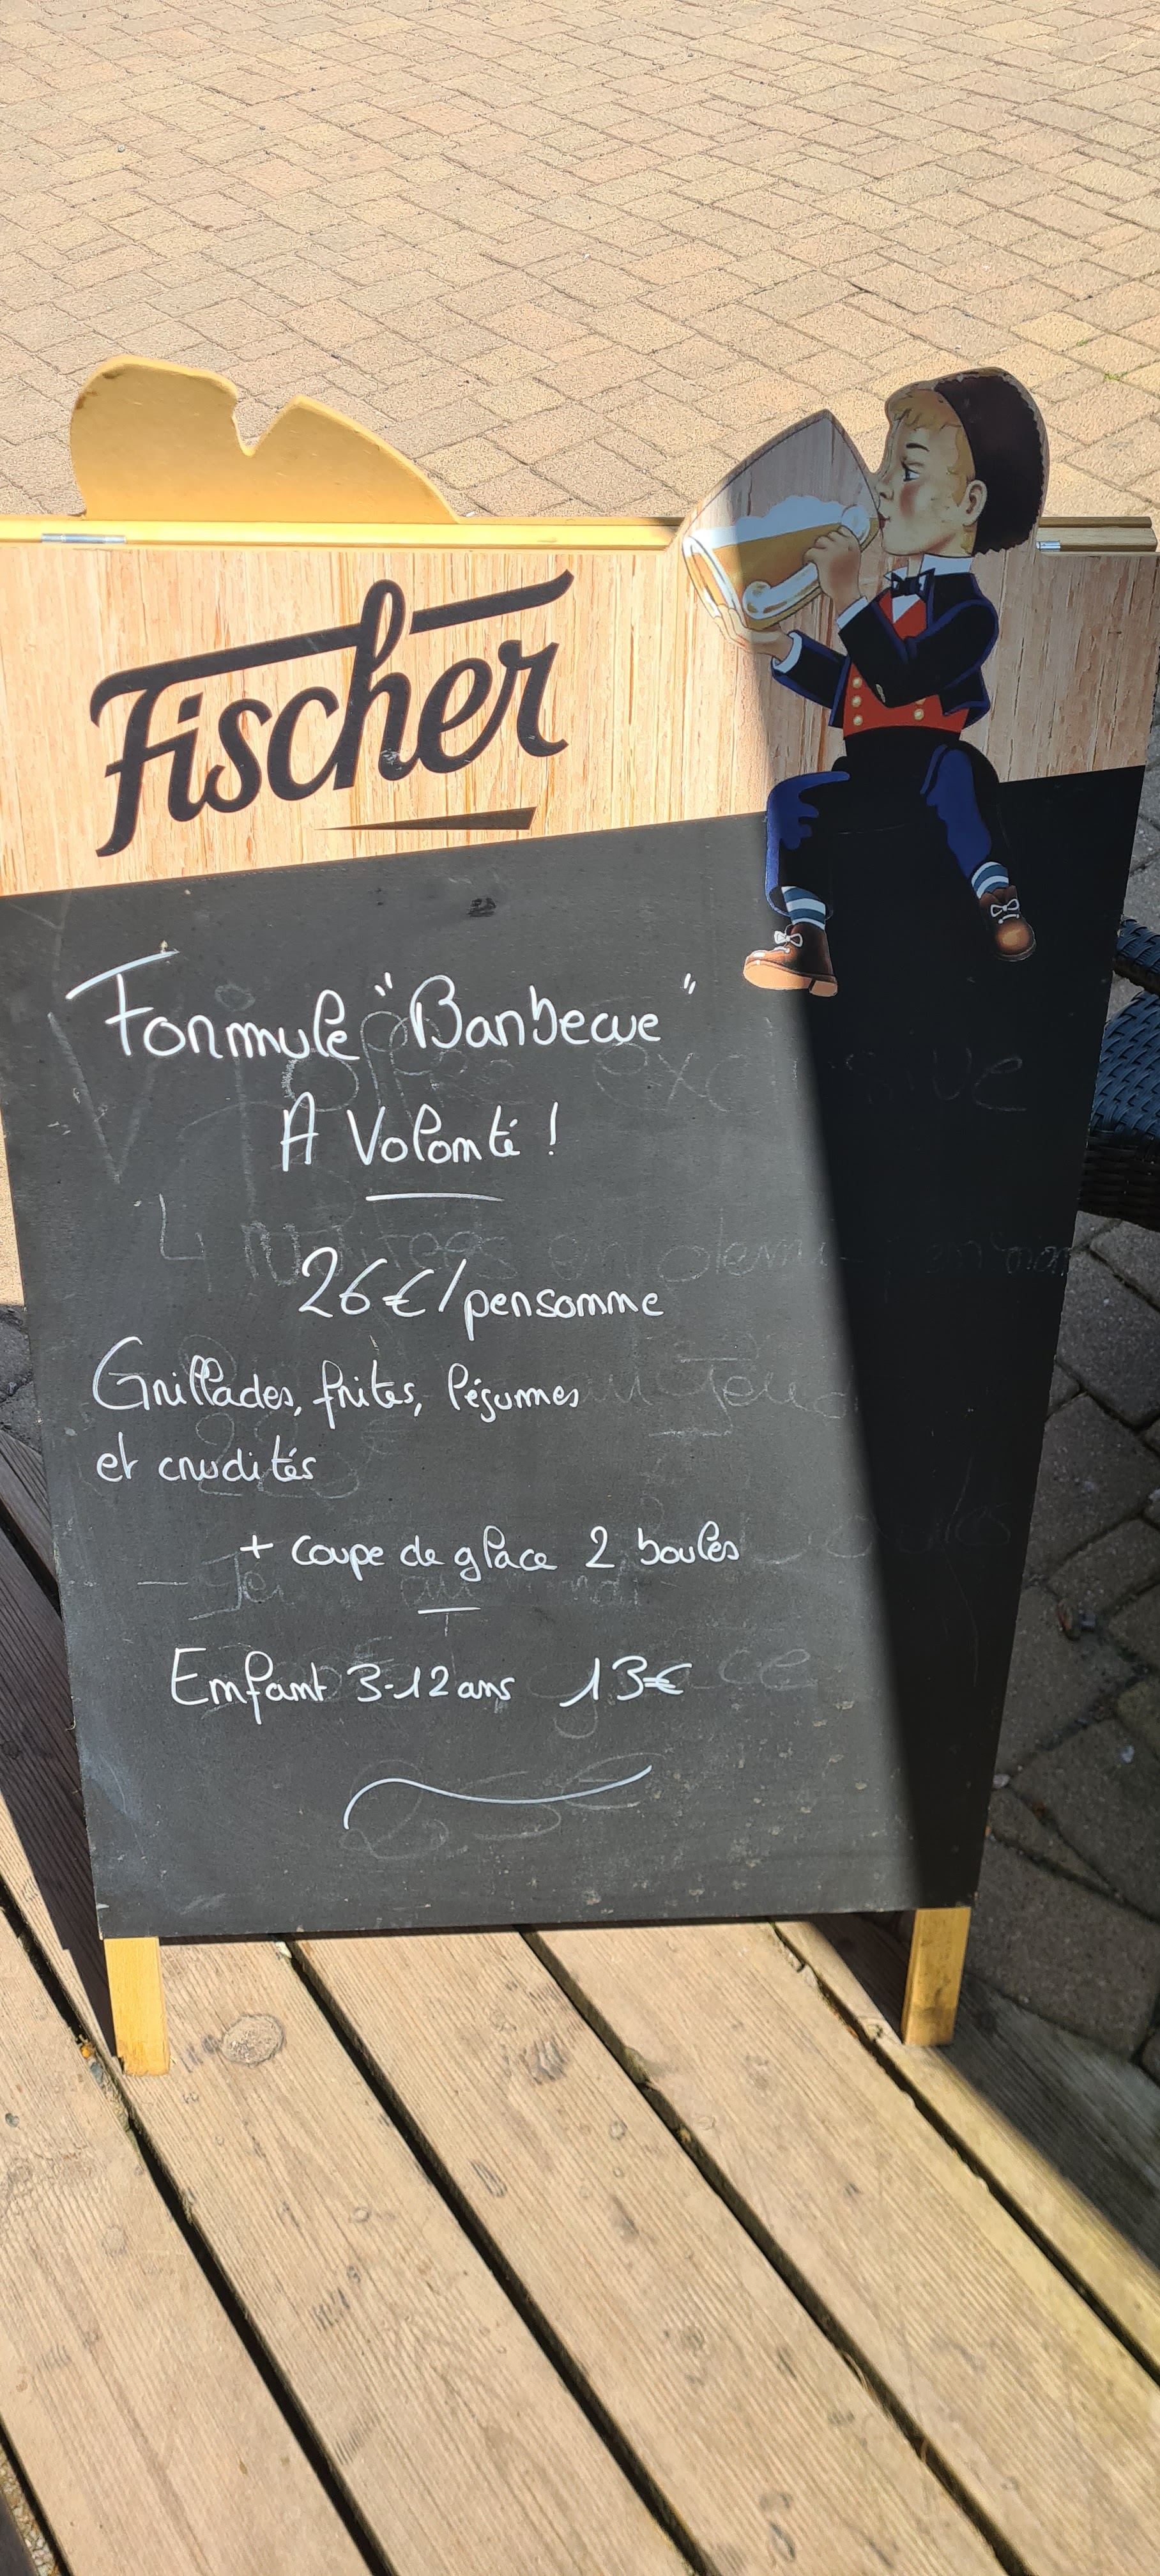 Fischer
Formule "Barbecue"
A Volonté !
26€/personne
Grillades, frites, légumes
et crudités
+ coupe de glace 2 boules
Enfant 3-12 ans 13€